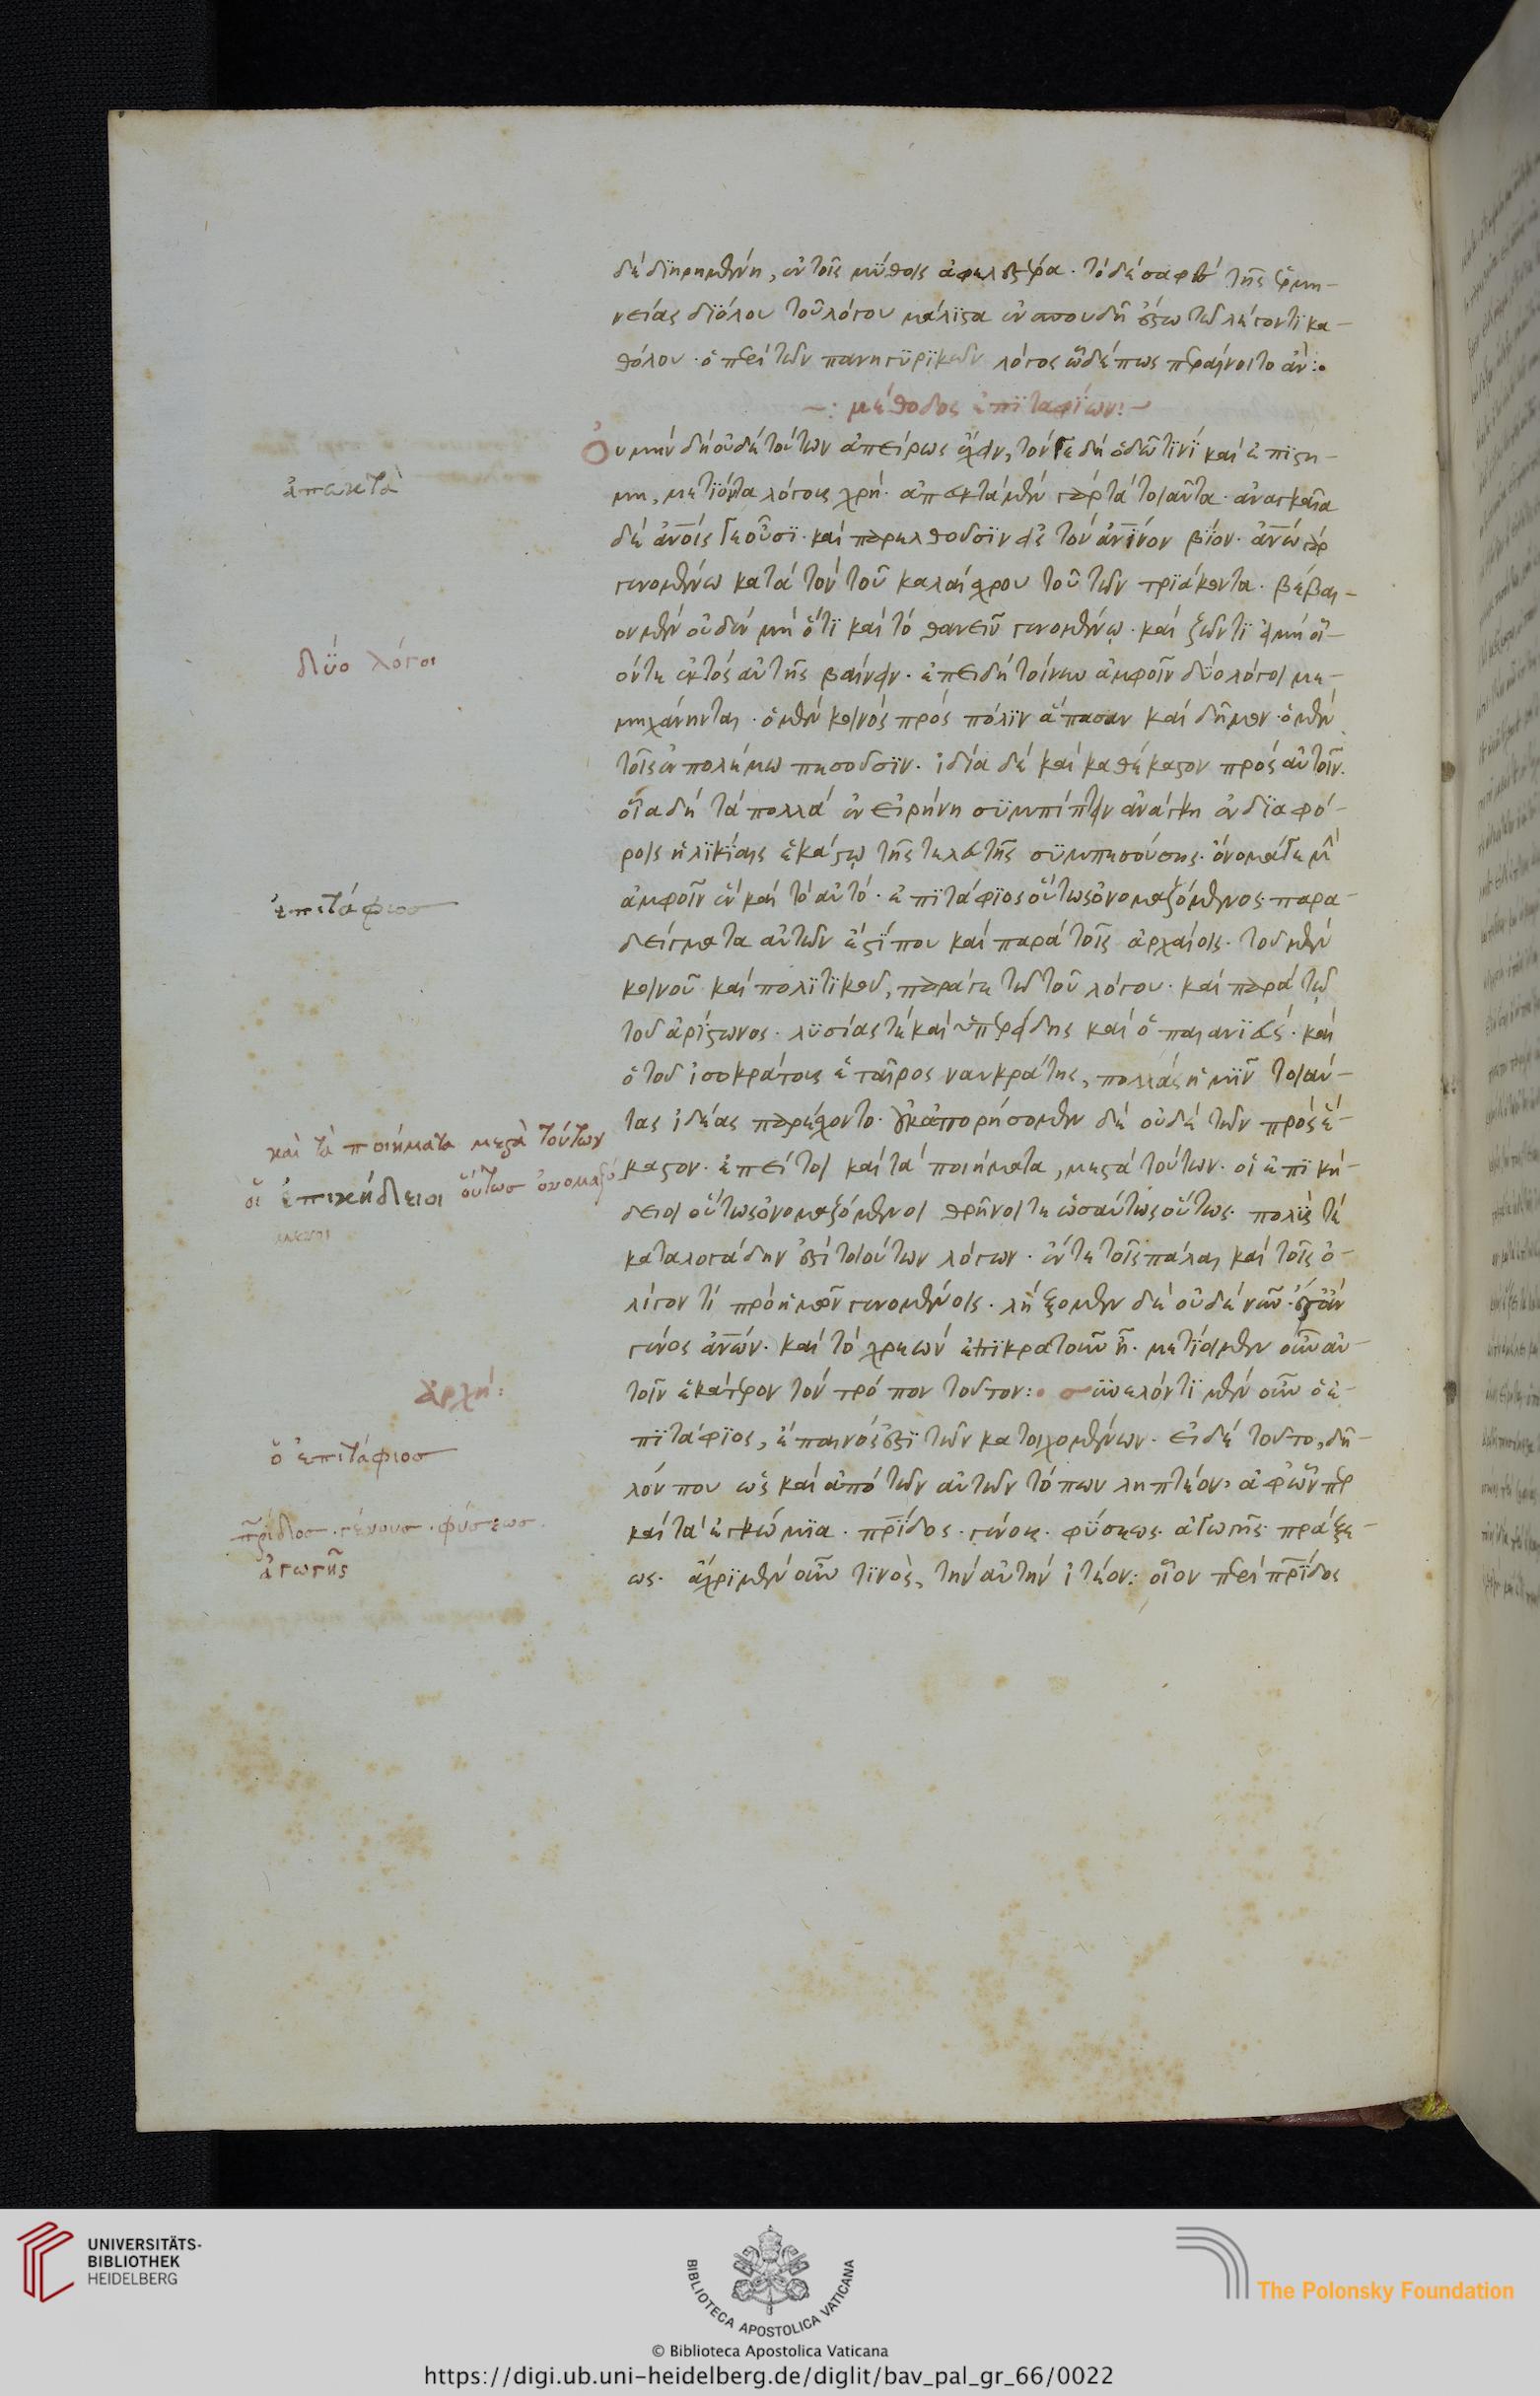 δὲ διῃρημένη, ἐν τοῖς μύθοις ἀφελεστέρα· τὸ δὲ σαφὲς τῆς ἑρμη-
νείας διόλου τοῦ λόγου μάλιστα ἐν σπουδῇ ἔστω τῷ λέγοντι κα-
θόλου· ὁ περὶ τῶν πανηγυρικῶν λόγος ὧδέ πως περαίνοιτο ἄν:
~: μέθοδος ἐπιταφίων:~
Οὐ μὴν δὴ οὐδὲ τούτων ἀπείρως ἔχειν, τόν γε δὴ ὁδῷ τινὶ καὶ ἐπιστή-
μῃ, μετιόντα λόγους χρή· ἀπευκτὰ μὲν γὰρ τὰ τοιαῦτα· ἀναγκαῖα
δὲ ἀνοις γε οὖσι· καὶ παρελθοῦσιν εἰς τὸν ἀνινον βίον· ἀνω γὰρ
γενομένω κατὰ τὸν τοῦ καλαίχρου τοῦ τῶν τριάκοντα· βέβαι-
ον μὲν οὐδὲν μὴ ὅτι καὶ τὸ θανεῖν γενομένῳ· καὶ ζῶντι εἰ μὴ οἵ-
όντε ἐκτὸς αὐτῆς βαίνειν· ἐπειδὴ τοίνυν ἀμφοῖν δύο λόγοι με-
μηχάνηνται· ὁ μὲν κοινὸς πρὸς πόλιν ἅπασαν καὶ δῆμον· ὁ μὲν
τοῖς ἐν πολέμω πεσοῦσιν· ἰδία δὲ καὶ καθέκαστον πρὸς αὐτοῖν.
οἷα δὴ τὰ πολλὰ ἐν εἰρήνη συμπίπτειν ἀνάγκη ἐν διαφό-
ροις ἡλικίαις ἑκάστῳ τῆς τελευτῆς συμπεσούσης· ὄνομά γε μὴν
ἀμφοῖν ἓν καὶ τὸ αὐτό· ἐπιτάφιος οὕτως ὀνομαζόμενος· παρα-
δείγματα αὐτῶν ἐστί που καὶ παρὰ τοῖς ἀρχαίοις· τοῦ μὲν
κοινοῦ καὶ πολιτικοῦ, παρά γε τῶ τοῦ λόγου· καὶ παρὰ τῷ
τοῦ ἀρίστωνος· λυσίας τὲ καὶ ὑπερείδης καὶ ὁ παιανιεύς· καὶ
ὁ τοῦ ἰσοκράτους ἑταῖρος ναυκράτης, πολλὰς ἡμῖν τοιαύ-
τας ἰδέας παρέχοντο· οὐκ ἀπορήσομεν δὲ οὐδὲ τῶν πρὸς ἕ-
καστον· ἐπεί τοι καὶ τὰ ποιήματα, μεστὰ τούτων· οἱ ἐπική-
δειοι οὕτως ὀνομαζόμενοι θρῆνοί τε ὡσαύτως οὕτως· πολύς τὲ
καταλογάδην ἐστὶ τοιούτων λόγων· ἔν τε τοῖς πάλαι καὶ τοῖς ὀ-
λίγον τί πρὸ ἡμῶν γενομένοις· λήξομεν δὲ οὐδὲ νῦν· ἔστ' ἂν
γένος ἀνων· καὶ τὸ χρεὼν ἐπικρατοῦν ᾖ· μετίοιμεν οὖν αὐ-
τοῖν ἑκάτερον τὸν τρόπον τοῦτον: συνελόντι μὲν οὖν ὁ ἐ-
πιτάφιος, ἔπαινός ἐστι τῶν κατοιχομένων· εἰ δὲ τοῦτο, δῆ-
λόν που ὡς καὶ ἀπὸ τῶν αὐτῶν τόπων ληπτέον, ἀφ' ὧνπερ
καὶ τὰ ἐγκώμια· πρίδος· γένους· φύσεως· ἀγωγῆς· πράξε-
ως· ἄχρι μὲν οὖν τινὸς, τὴν αὐτὴν ἰτέον: οἷον περὶ πρίδος
ἀπευκτὰ
δύο λόγοι
ἐπιτάφιοσ
καὶ τὰ ποιήματα μεστὰ τούτων
οἱ ἐπικήδειοι οὕτωσ ὀνομαζό-
μενοι
ἀρχή:
ὁ ἐπιτάφιοσ
πρίδοσ· γένουσ· φύσεωσ.
ἀγωγῆς
UNIVERSITÄTS-
BIBLIOTHEK
HEIDELBERG
BIBLIOTECA APOSTOLICA VATICANA
The Polonsky Foundation
© Biblioteca Apostolica Vaticana
https://digi.ub.uni-heidelberg.de/diglit/bav_pal_gr_66/0022